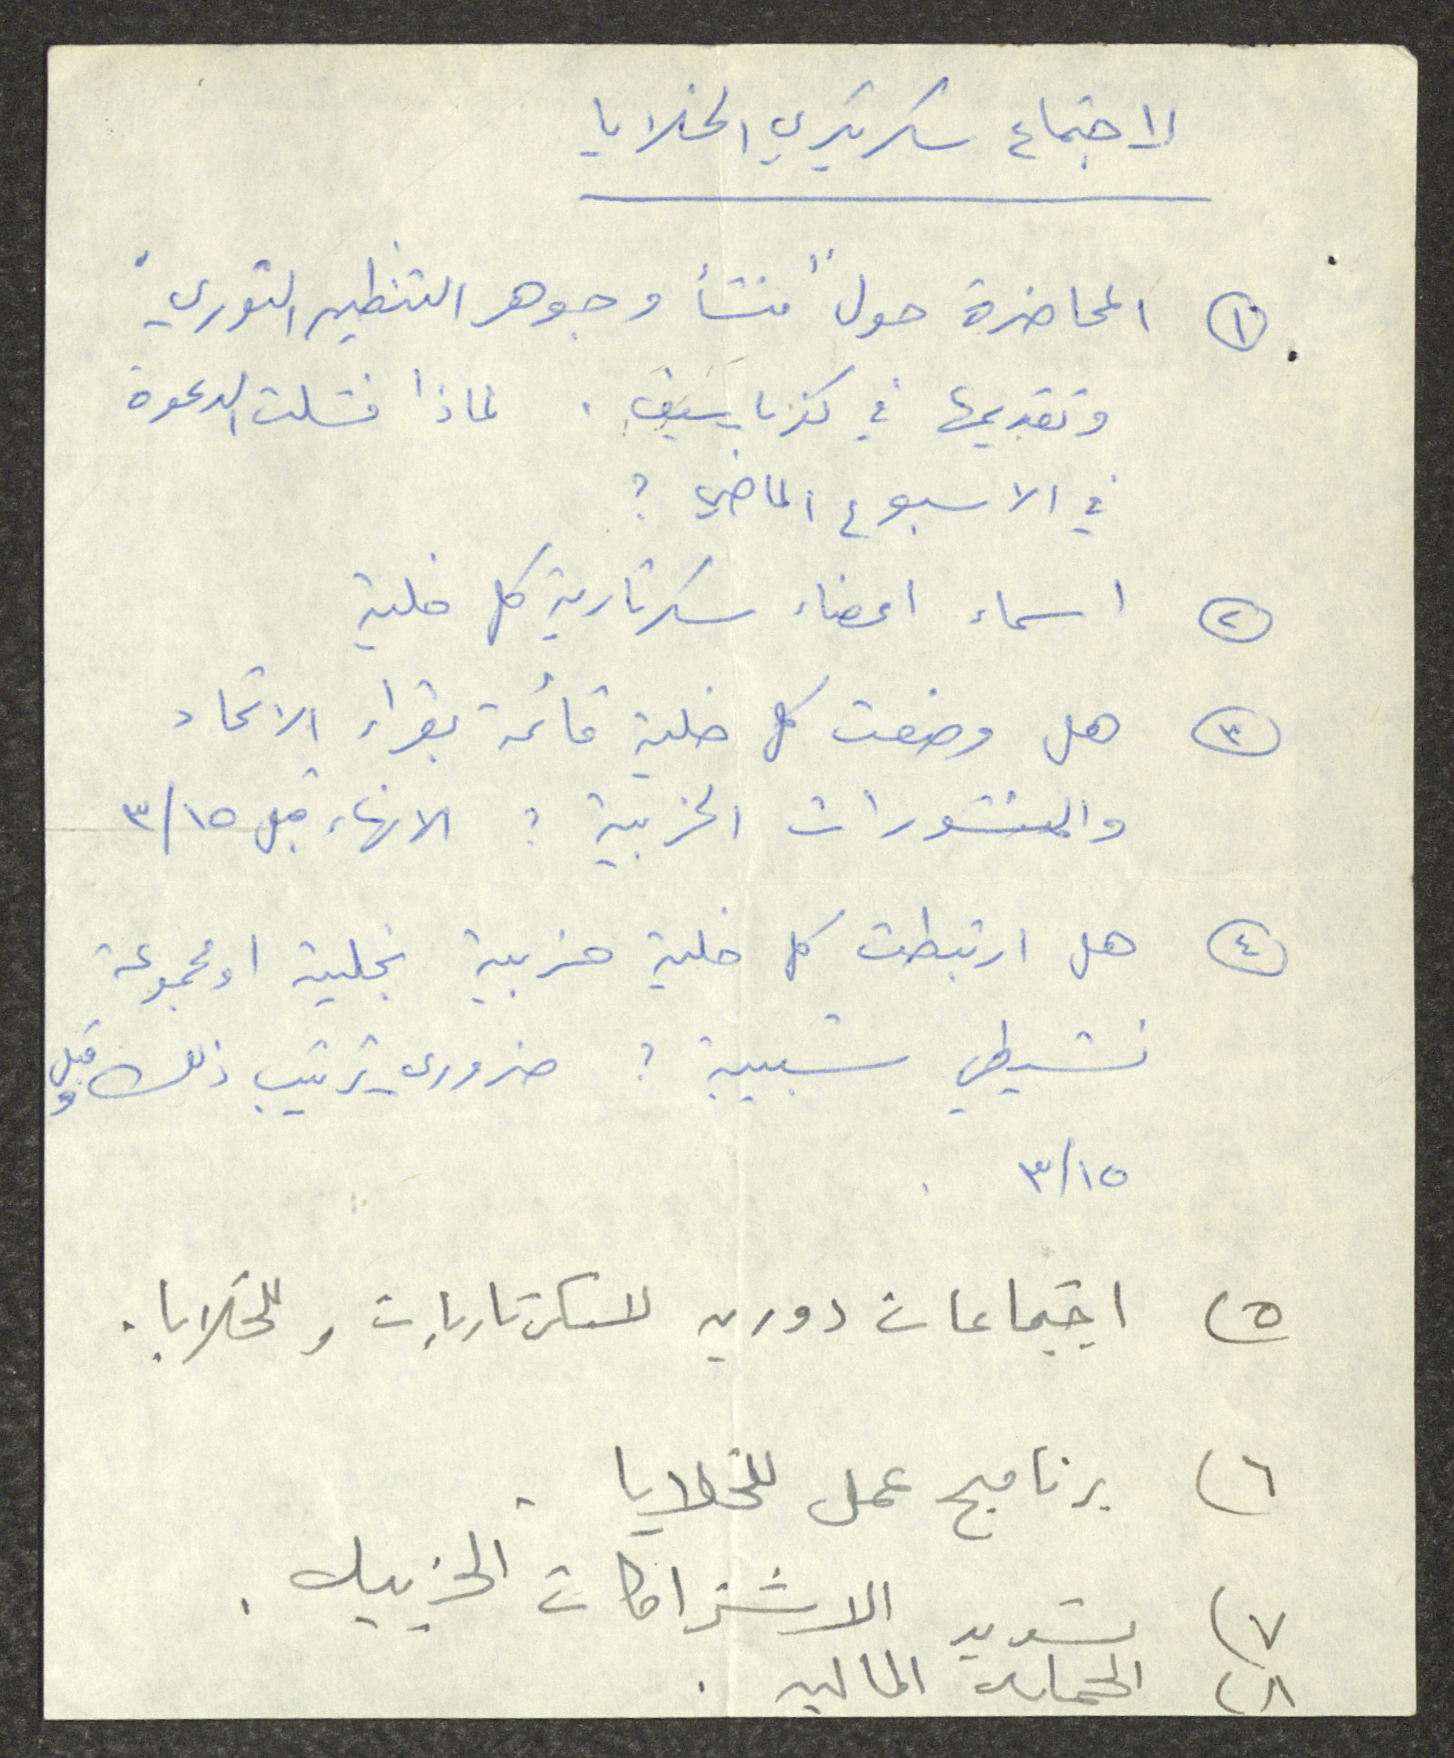 لاجتماع سكرتيري الخلايا
① المحاضرة حول "منشأ وجوهر التنظيم الثوري"
وتقديمها في كفرياسيف. لماذا فشلت الدعوة
في الاسبوع الماضي ؟
② اسماء اعضاء سكرتارية كل خلية
③ هل وضعت كل خلية قائمة بقراء الاتحاد
والمنشورات الحزبية ؟ الانهاء قبل ١٥/٣
④ هل ارتبطت كل خلية حزبية بخلية او مجموعة
نشيطي شبيبة ؟ ضروري ترتيب ذلك قبل
١٥/٣ .
٥) اجتماعات دوريه للسكرتاريات وللخلايا.
٦) برنامج عمل للخلايا .
٧) تسديد الاشتراكات الحزبيه .
٨) الحمله الماليه .